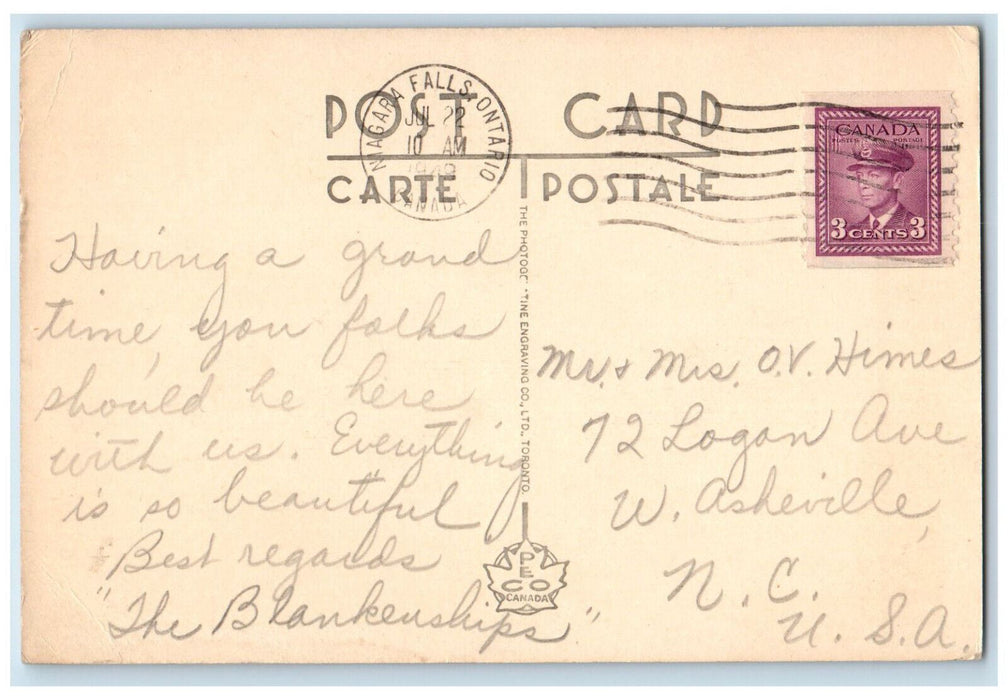 POST CARD
CARTE POSTALE
NIAGARA FALLS, ONTARIO
JUL 22
10 AM
CANADA
CANADA
POSTES POSTAGE
3 CENTS 3
Having a grand
time, you folks
should be here
with us. Everything
is so beautiful
Best regards
"The Blankenships"
THE PHOTOGE TINE ENGRAVING CO., LTD., TORONTO
PECO
CANADA
Mr. & Mrs. O.V. Himes
72 Logan Ave
W. Asheville,
N. C.
U. S. A.